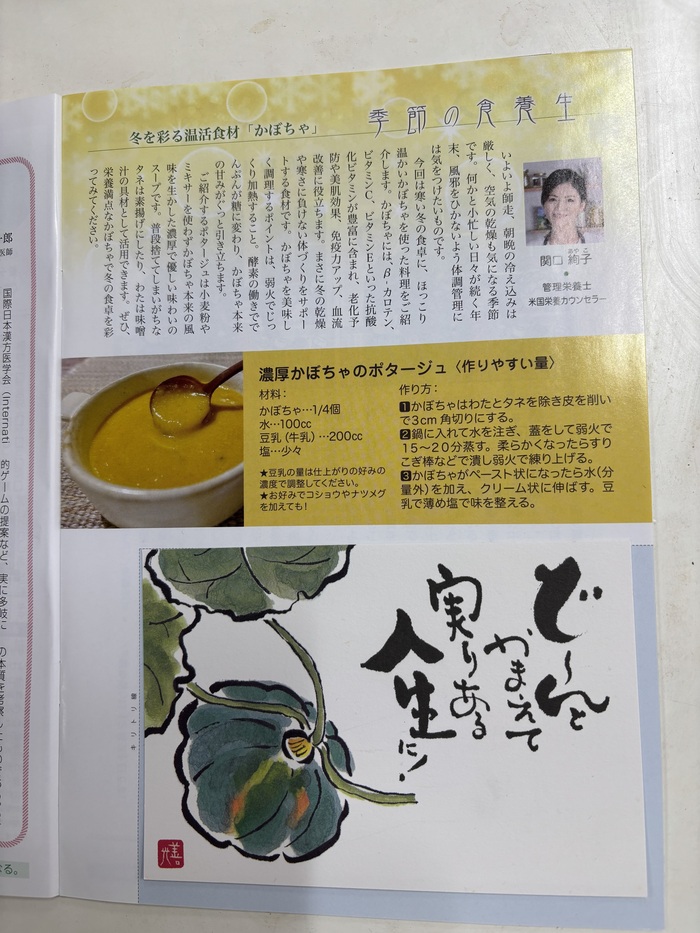 季節の食養生
冬を彩る温活食材「かぼちゃ」
関口 絢子
あやこ
管理栄養士
米国栄養カウンセラー
いよいよ師走、朝晩の冷え込みは
厳しく、空気の乾燥も気になる季節
です。何かと小忙しい日々が続く年
末、風邪をひかないよう体調管理に
は気をつけたいものです。
今回は寒い冬の食卓に、ほっこり
温かいかぼちゃを使った料理をご紹
介します。かぼちゃには、β-カロテン、
ビタミンC、ビタミンEといった抗酸
化ビタミンが豊富に含まれ、老化予
防や美肌効果、免疫力アップ、血流
改善に役立ちます。まさに冬の乾燥
や寒さに負けない体づくりをサポー
トする食材です。かぼちゃを美味し
く調理するポイントは、弱火でじっ
くり加熱すること。酵素の働きでで
んぷんが糖に変わり、かぼちゃ本来
の甘みがぐっと引き立ちます。
ご紹介するポタージュは小麦粉や
ミキサーを使わずかぼちゃ本来の風
味を生かした濃厚で優しい味わいの
スープです。普段捨ててしまいがちな
タネは素揚げにしたり、わたは味噌
汁の具材として活用できます。ぜひ、
栄養満点なかぼちゃで冬の食卓を彩
ってみてください。
濃厚かぼちゃのポタージュ〈作りやすい量〉
材料：
かぼちゃ…1/4個
水…100cc
豆乳（牛乳）…200cc
塩…少々
★豆乳の量は仕上がりの好みの
濃度で調整してください。
★お好みでコショウやナツメグ
を加えても！
作り方：
1かぼちゃはわたとタネを除き皮を削い
で3cm角切りにする。
2鍋に入れて水を注ぎ、蓋をして弱火で
15〜20分蒸す。柔らかくなったらすり
こぎ棒などで潰し弱火で練り上げる。
3かぼちゃがペースト状になったら水（分
量外）を加え、クリーム状に伸ばす。豆
乳で薄め塩で味を整える。
ど〜んと
かまえて
実りある
人生に！
キリトリ線
一郎
医師
国際日本漢方医学会（Internati
的ゲームの提案など、実に多岐に
の本質を考察
なる。